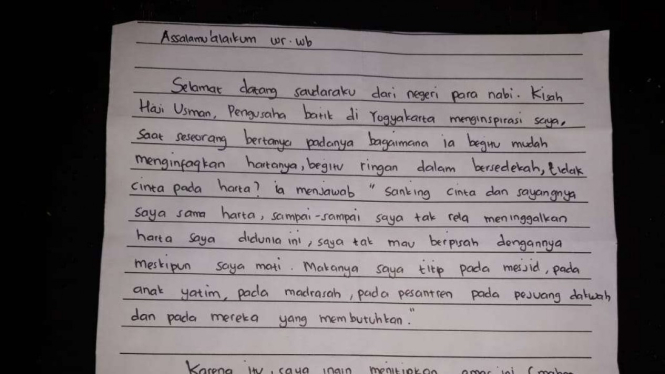 Assalamu'alaikum wr. wb
Selamat datang saudaraku dari negeri para nabi. Kisah
Haji Usman, Pengusaha batik di Yogyakarta menginspirasi saya,
saat seseorang bertanya padanya bagaimana ia begitu mudah
menginfaqkan hartanya, begitu ringan dalam bersedekah, tidak
cinta pada harta? ia menjawab " sanking cinta dan sayangnya
saya sama harta, sampai-sampai saya tak rela meninggalkan
harta saya didunia ini, saya tak mau berpisah dengannya
meskipun saya mati. Makanya saya titip pada mesjid, pada
anak yatim, pada madrasah, pada pesantren pada pejuang dakwah
dan pada mereka yang membutuhkan."
Karena itu, saya ingin menitipkan amal ini (